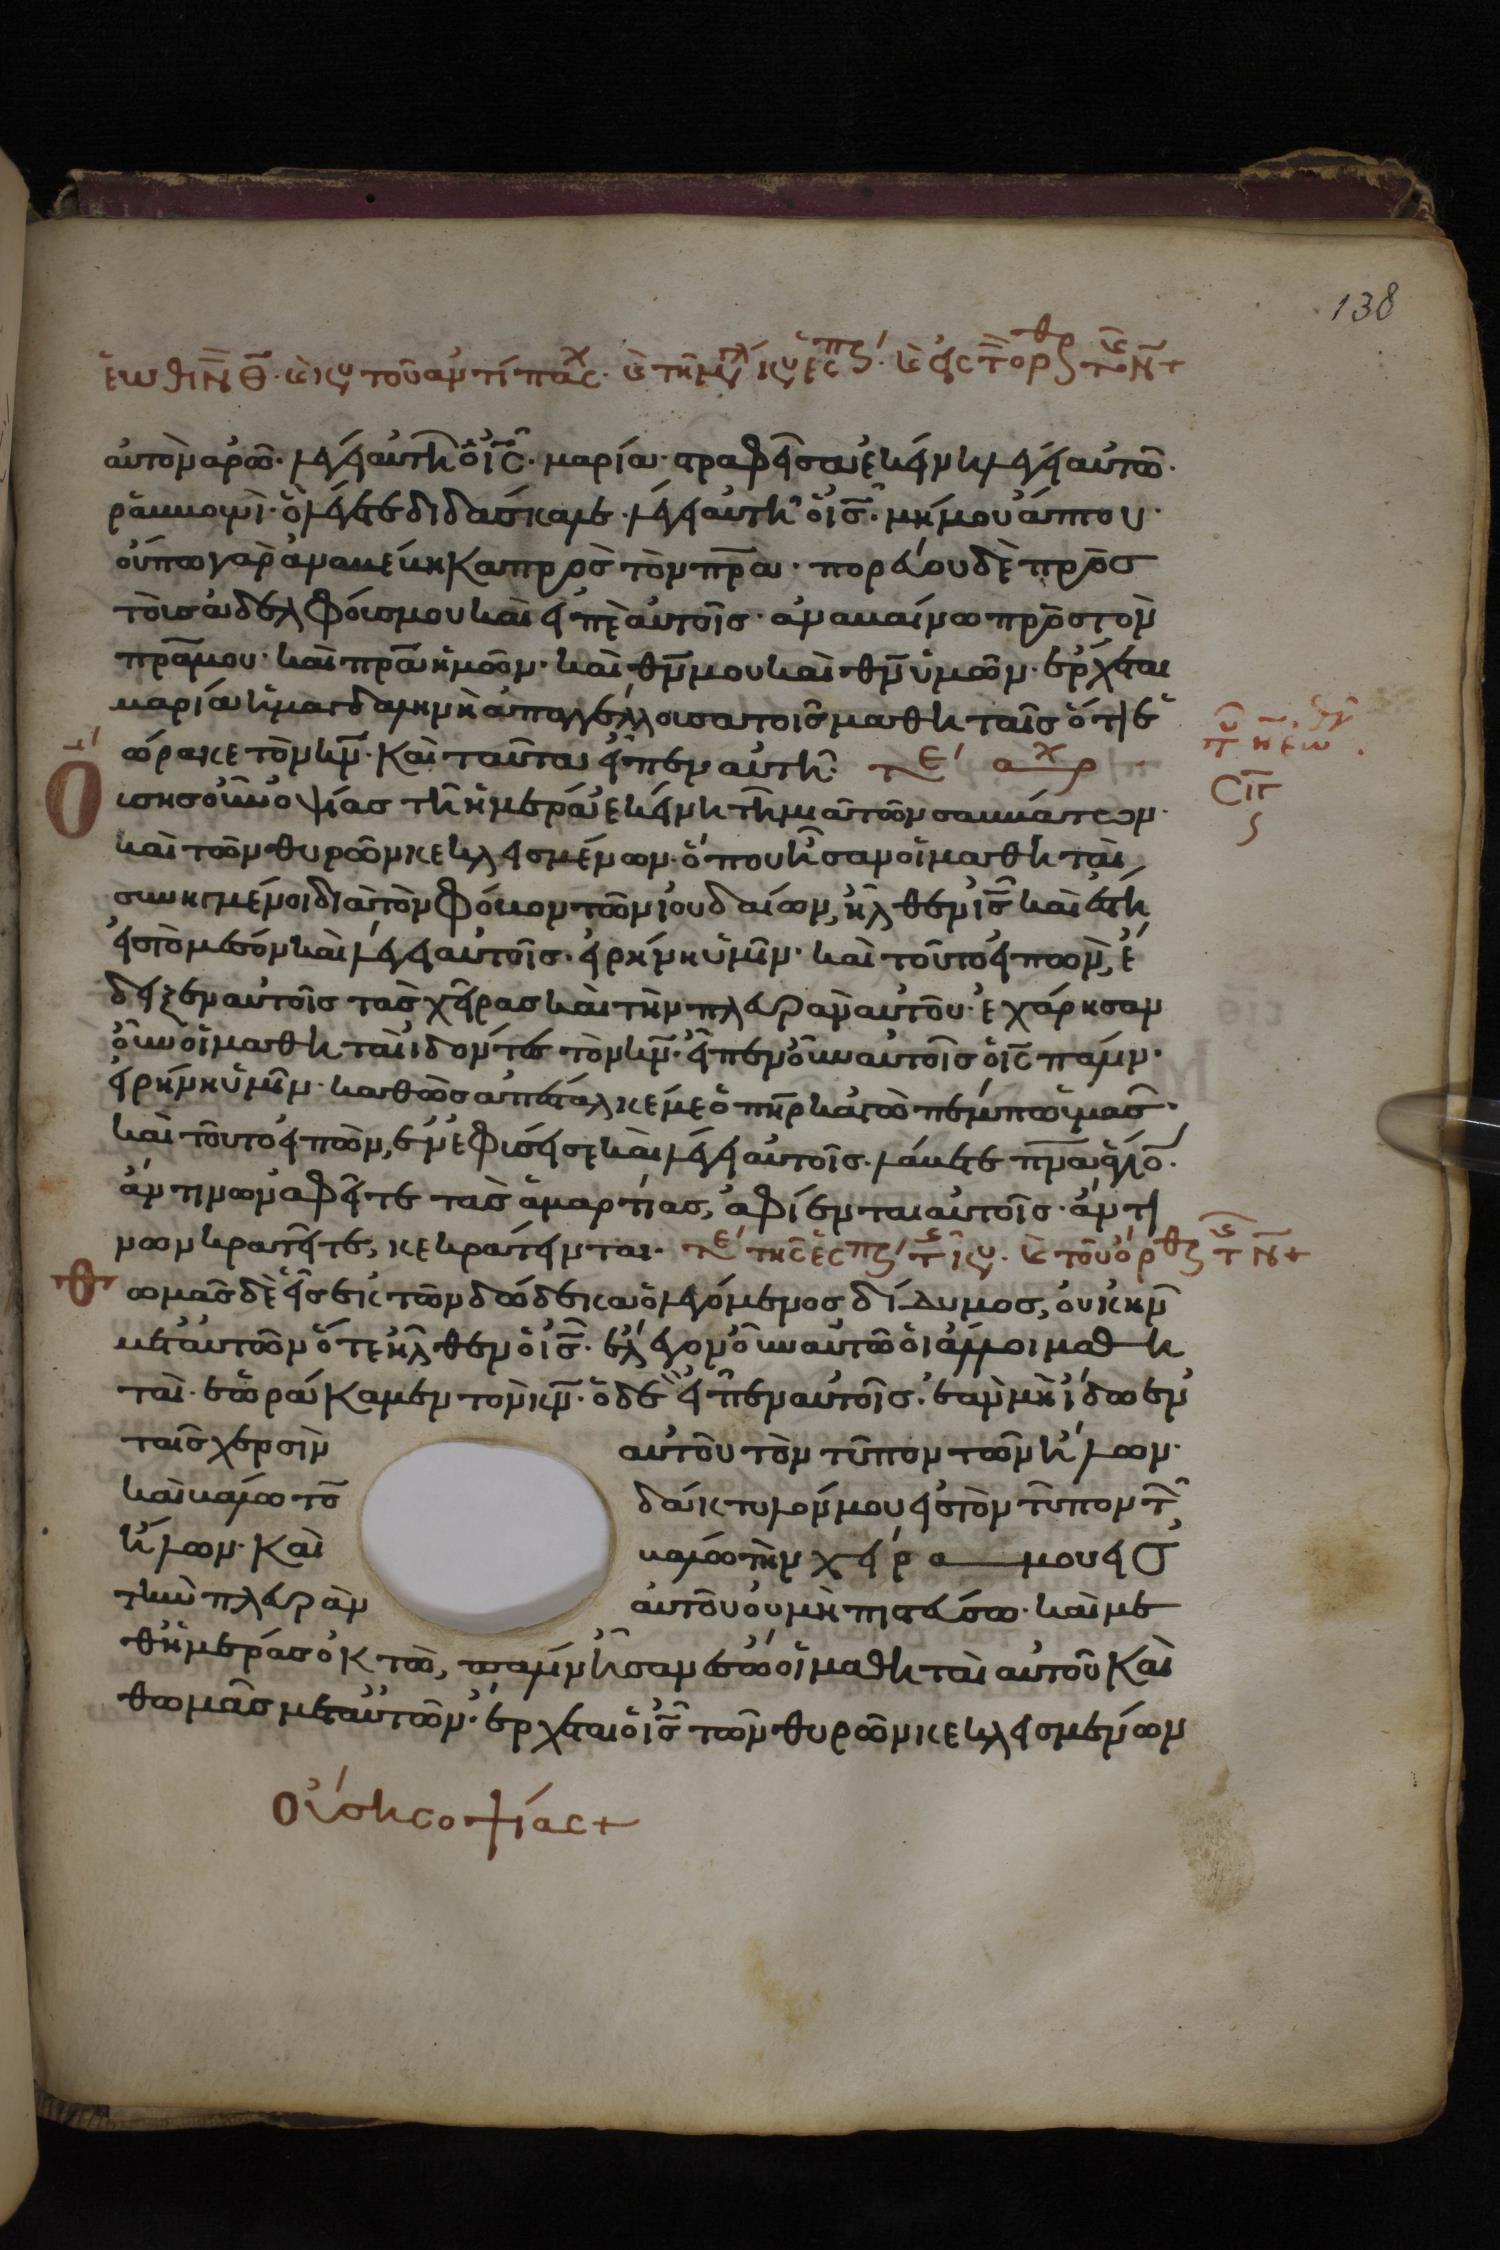 138
ἑωθιν Θ κυ τοῦ ἀντίπασχ
αὐτὸν ἀρῶ· λέγει αὐτῆ ὁ ις· μαρία· στραφεῖσα ἐκείνη λέγει αὐτῶ·
ραββονὶ· ὃ λέγεται διδάσκαλε· λέγει αὐτῆ ὁ ις· μή μου ἅπτου·
οὔπω γὰρ ἀναβέβηκα πρὸς τὸν πρα· πορεύου δὲ πρὸς
τοὺς ἀδελφούς μου καὶ εἰπὲ αὐτοῖς· ἀναβαίνω πρὸς τὸν
πρα μου· καὶ πρα ὑμῶν· καὶ θν μου καὶ θν ὑμῶν· ἔρχεται
μαρία ἡ μαγδαληνὴ ἀπαγγέλλουσα τοῖς μαθηταῖς ὅτι ἑ
ώρακε τὸν κν· καὶ ταῦτα εἶπεν αὐτῆ· τε
Οὔσης οὖν ὀψίας τῆ ἡμέρα ἐκείνη τῆ μιᾶ τῶν σαββάτων·
καὶ τῶν θυρῶν κεκλεισμένων· ὅπου ἦσαν οἱ μαθηταὶ
συνηγμένοι διὰ τὸν φόβον τῶν ἰουδαίων, ἦλθεν ις καὶ ἔστη
εἰς τὸ μέσον καὶ λέγει αὐτοῖς· εἰρήνη ὑμῖν· καὶ τοῦτο εἰπὼν, ἔ
δειξεν αὐτοῖς τὰς χεῖρας καὶ τὴν πλευρὰν αὐτοῦ· ἐχάρησαν
οὖν οἱ μαθηταὶ ἰδόντες τὸν κν· εἶπεν οὖν αὐτοῖς ὁ ις πάλιν·
εἰρήνη ὑμῖν· καθὼς ἀπέσταλκέ με ὁ πηρ κἀγὼ πέμπω ὑμᾶς·
καὶ τοῦτο εἰπὼν, ἐνεφύσησε καὶ λέγει αὐτοῖς· λάβετε πνα ἅγιον·
ἄν τινων ἀφῆτε τὰς ἁμαρτίας, ἀφίενται αὐτοῖς· ἄν τι
νων κρατῆτε, κεκράτηνται· τε
Θωμᾶς δὲ εἷς ἐκ τῶν δώδεκα ὁ λεγόμενος δίδυμος, οὐκ ἦν
μετ αὐτῶν ὅτε ἦλθεν ὁ ις· ἔλεγον οὖν αὐτῶ οἱ ἄλλοι μαθη
ταὶ· ἑωράκαμεν τὸν κν· ὁ δὲ εἶπεν αὐτοῖς· ἐὰν μὴ ἴδω ἐν
ταῖς χερσὶν αὐτοῦ τὸν τύπον τῶν ἥλων·
καὶ βάλω τὸν δάκτυλόν μου εἰς τὸν τύπον τῶν
ἥλων· καὶ βάλω τὴν χεῖρα μου εἰς
τὴν πλευρὰν αὐτοῦ οὐ μὴ πιστεύσω· καὶ με
θ ἡμέρας ὀκτὼ, πάλιν ἦσαν ἔσω οἱ μαθηταὶ αὐτοῦ καὶ
θωμᾶς μετ αὐτῶν· ἔρχεται ὁ ις τῶν θυρῶν κεκλεισμένων
Οὔσης ὀψίας +